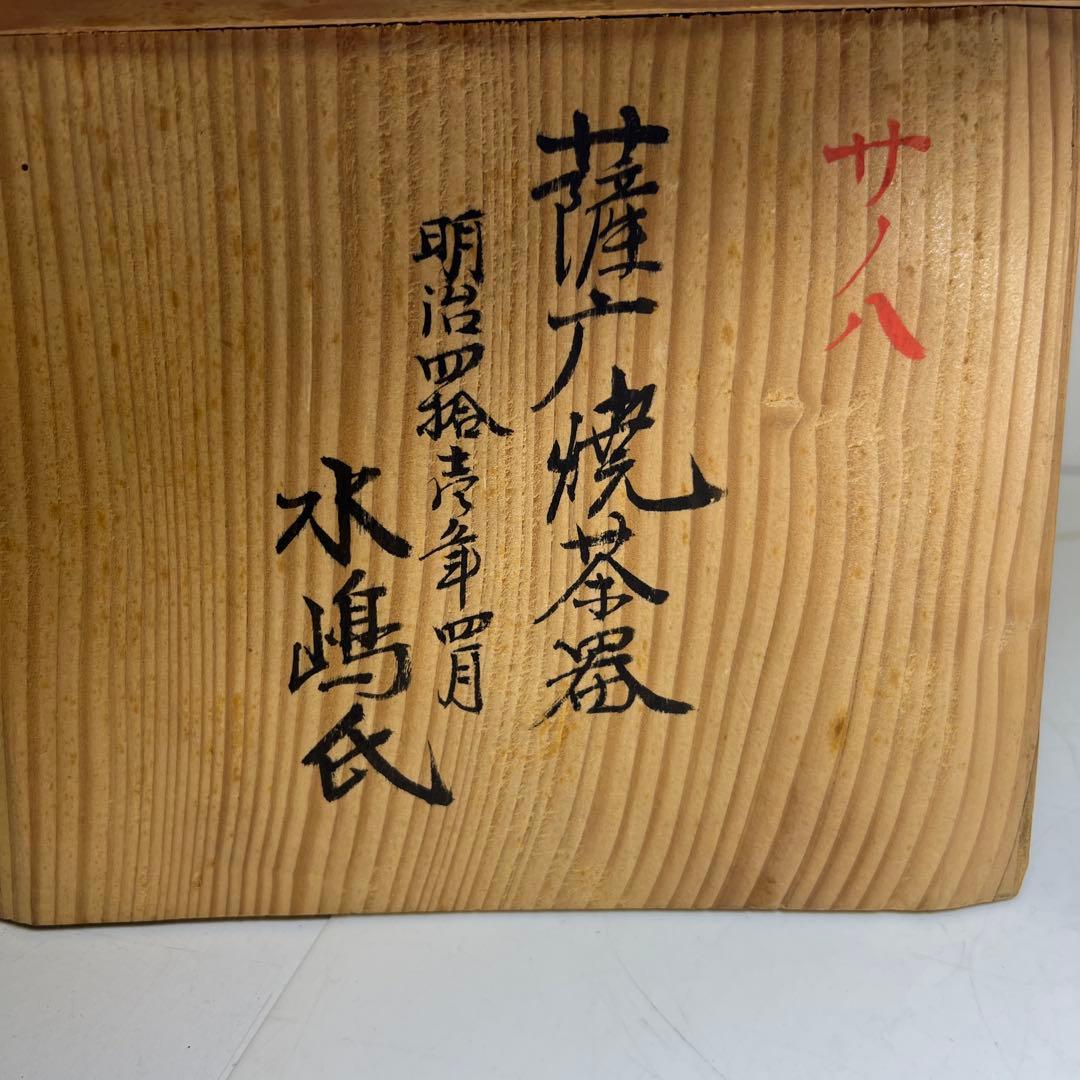 サノ八
薩广焼茶器
明治四拾壱年四月
水嶋氏